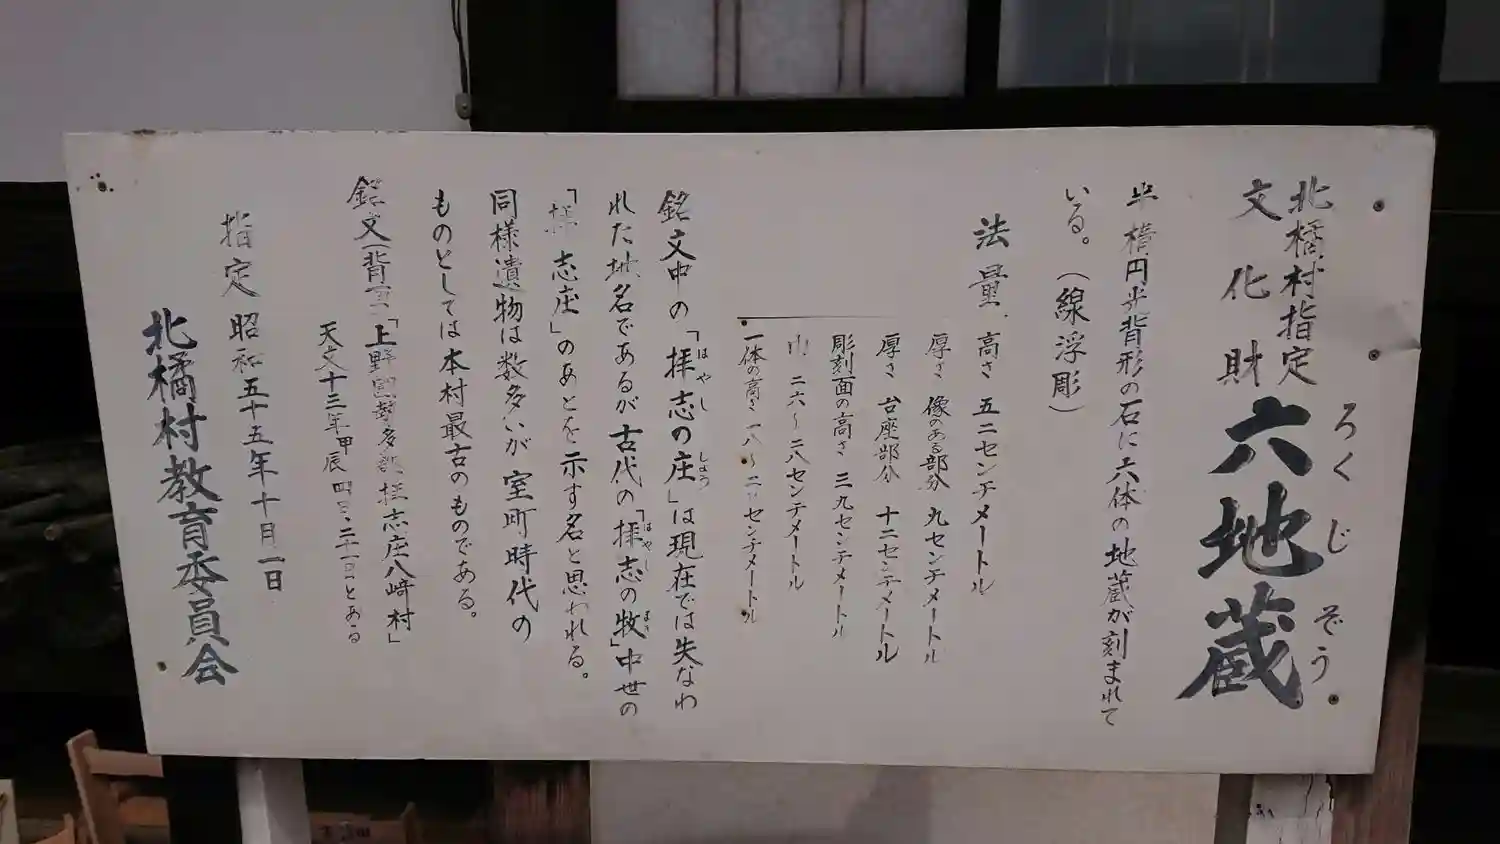 北橘村指定
文化財
六地蔵
ろくじぞう
半楕円光背形の石に六体の地蔵が刻まれて
いる。（線浮彫）
法量、高さ 五二センチメートル
厚さ 像のある部分 九センチメートル
厚さ 台座部分 十二センチメートル
彫刻面の高さ 三九センチメートル
巾 二六〜二八センチメートル
一体の高さ 一八〜二 センチメートル
銘文中の「拝志の庄」は現在では失なわ
はやし しょう
れた地名であるが古代の「拝志の牧」中世の
はやし まき
「拝志庄」のあとを示す名と思われる。
同様遺物は数多いが室町時代の
ものとしては本村最古のものである。
銘文（背面）「上野国勢多郡拝志庄八崎村」
天文十三年甲辰 二十一日とある
指定 昭和五十五年十月一日
北橘村教育委員会